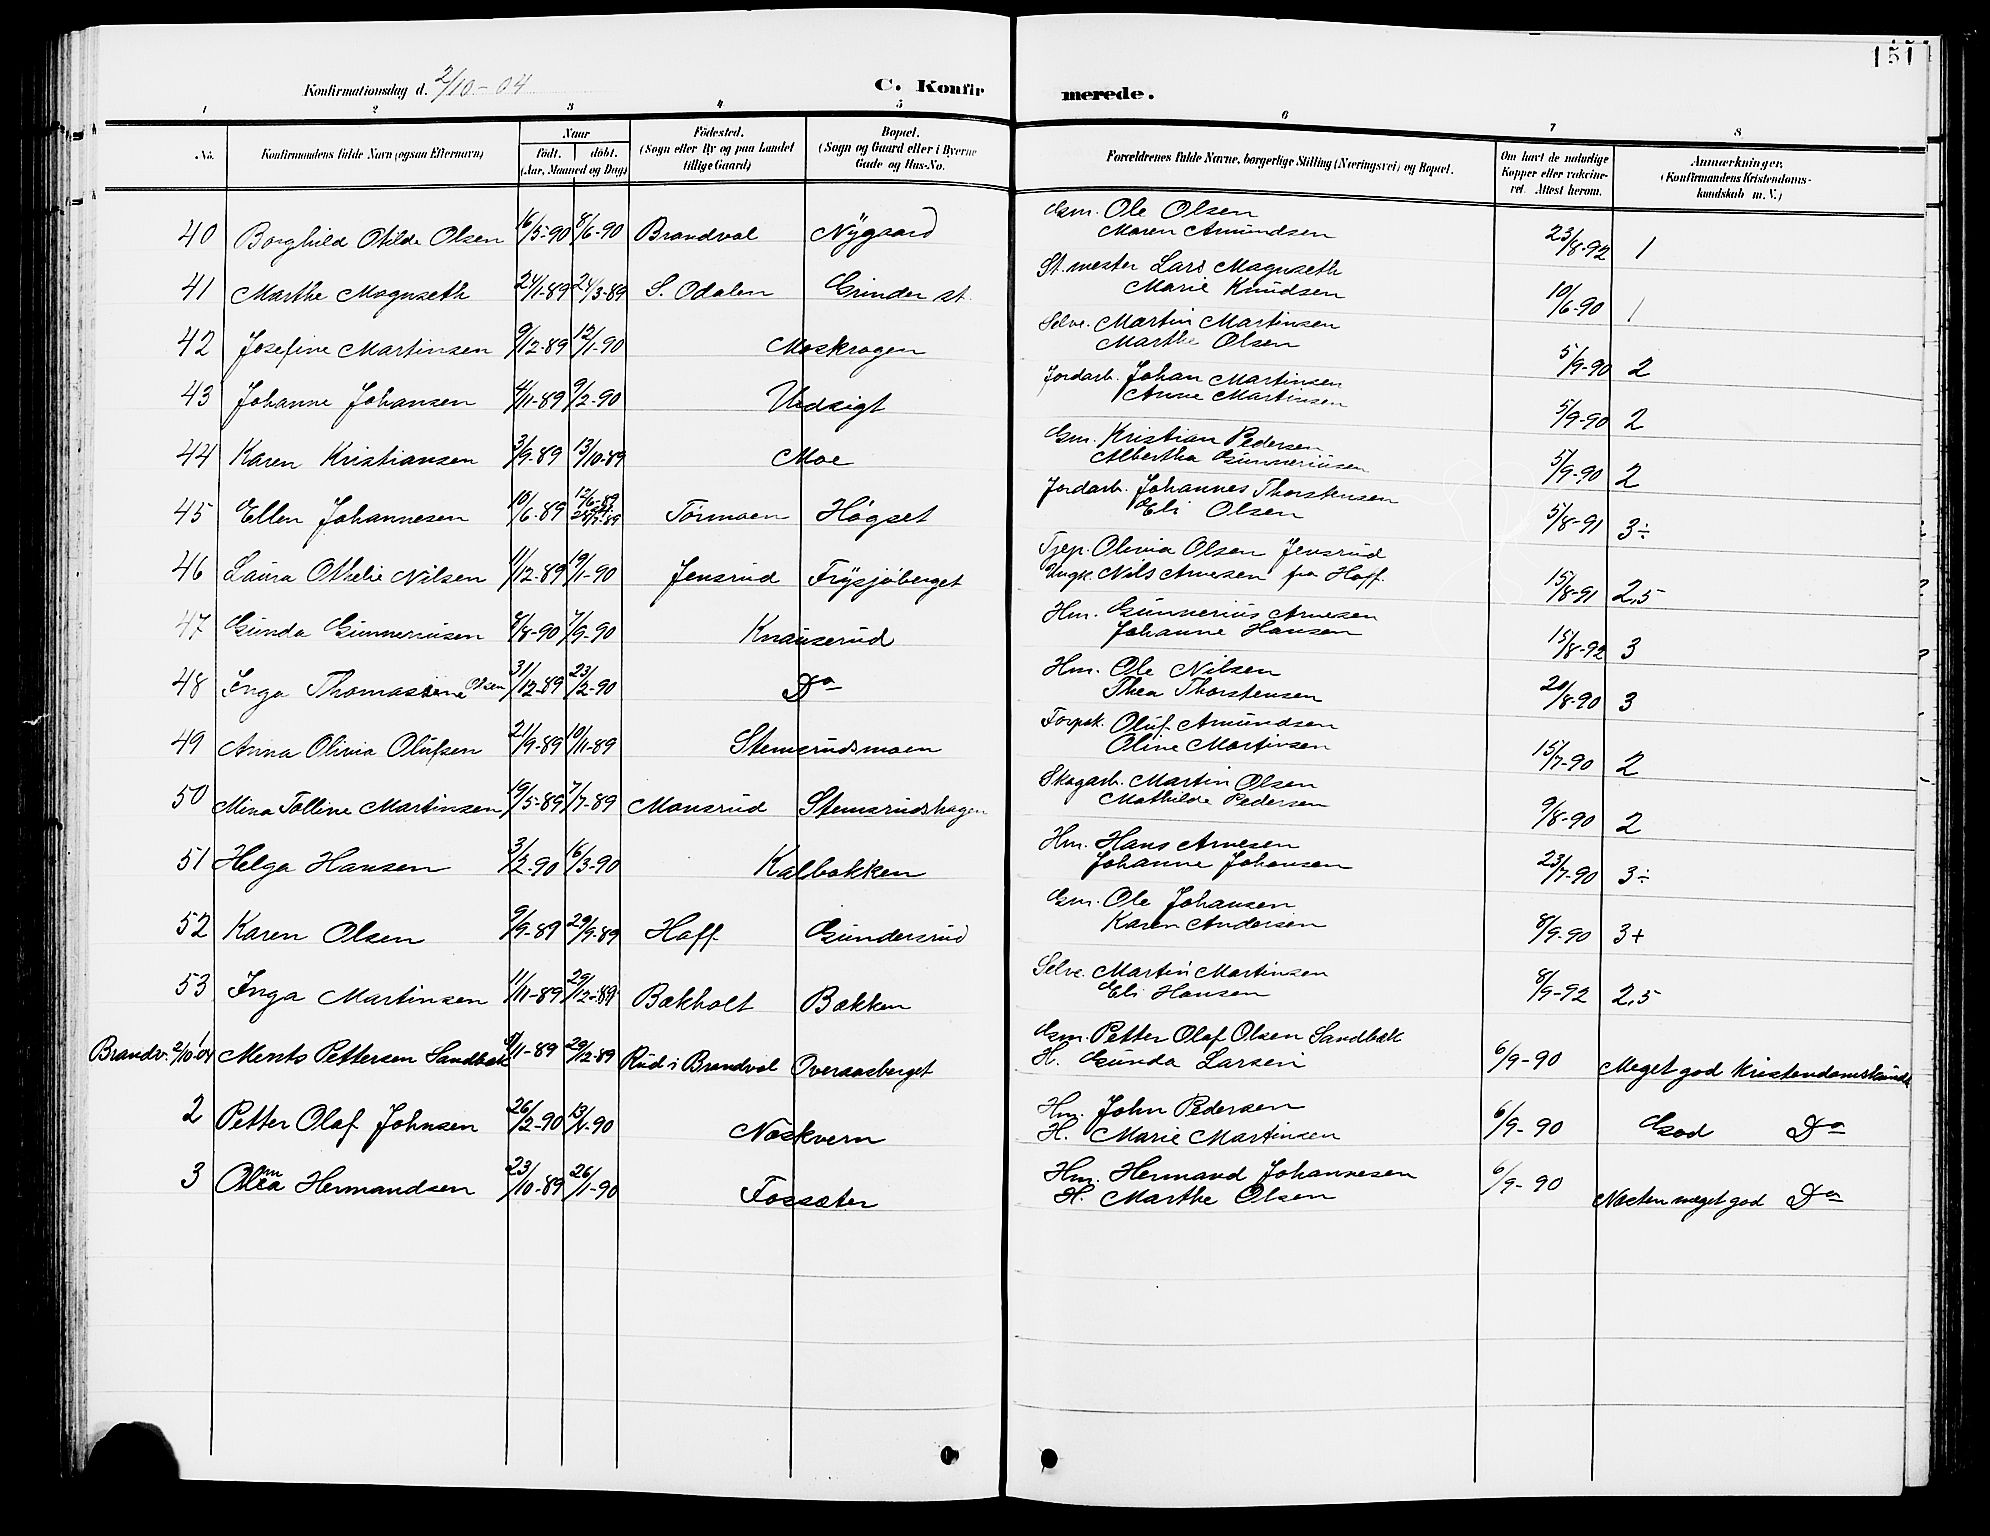 151
Konfirmationsdag d. 2/10-04 C. Konfirmerede.
1 2 3 4 5 6 7 8
No. Konfirmandens fulde Navn (ogsaa Efternavn) Naar Födt. döbt. (Aar, Maaned og Dag) Födested. (Sogn eller By og paa Landet tillige Gaard) Bopæl. (Sogn og Gaard eller i Byerne Gade og Hus-No. Forældrenes fulde Navne, borgerlige Stilling (Næringsvei) og Bopæl. Om havt de naturlige Kopper eller vakcineret. Attest herom. Anmærkninger. (Konfirmandens Kristendomskundskab m. V.)
40 Borghild Otilde Olsen 16/5-90 8/6-90 Brandval Nygaard Gm. Ole Olsen Maren Amundsen 23/8-92 1
41 Marthe Magnseth 24/3-89 S. Odalen Grinder st. St.mester Lars Magnseth Marie Knudsen 10/6-90 1
42 Josefine Martinsen 9/12-89 12/1-90 Moskragen Selve. Martin Martinsen Marthe Olsen 5/9-90 2
43 Johanne Johansen 4/11-89 9/2-90 Udsigt Jordarb. Johan Martinsen Anne Martinsen 5/9-90 2
44 Karen Kristiansen 3/9-89 13/10-89 Moe Gm. Kristian Pedersen Albertha Gunneriusen 5/9-90 2
45 Ellen Johannesen 10/6-89 12/6-89 Tormoen Högset Jordarb. Johannes Thorstensen Eli Olsen 5/8-91 3÷
46 Laura Othelie Nilsen 11/12-89 19/1-90 Jensrud Frysjöberget Tjep. Olivia Olsen Jensrud Ungk. Nils Arnesen fra Hoff. 15/8-91 2,5
47 Gunda Gunneriusen 8/8-90 7/9-90 Knauserud Hm. Gunnerius Arnesen Johanne Hansen 15/8-92 3
48 Inga Thomasine Olsen 31/12-89 23/2-90 Do Hm. Ole Nilsen Thea Thorstensen 20/8-90 3
49 Anna Olivia Olufsen 21/9-89 10/11-89 Stemsrudsmoen Forpak. Oluf Amundsen Oline Martinsen 15/7-90 2
50 Mina Tolline Martinsen 19/5-89 7/7-89 Monsrud Stemsrudshagen Skogarb. Martin Olsen Mathilde Pedersen 9/8-90 2
51 Helga Hansen 3/2-90 16/3-90 Kalbakken Hm. Hans Arnesen Johanne Johansen 23/7-90 3÷
52 Karen Olsen 9/9-89 29/9-89 Hoff Gundersrud Gm. Ole Johansen Karen Andersen 8/9-90 3+
53 Inga Martinsen 11/11-89 29/12-89 Bækholt Bækken Selve. Martin Martinsen Eli Hansen 8/9-92 2,5
Brandv. 2/10-04 1 Ments Pettersen Sandbæk 29/12-89 Rud i Brandval Overaasberget Gm. Petter Olaf Olsen Sandbæk H. Gunda Larsen 6/9-90 Meget god Kristendomskunds
2 Petter Olaf Johnsen 26/2-90 13/4-90 Noskvern Hm. John Pedersen H. Marie Martinsen 6/9-90 God Do
3 Hermandsen 23/10-89 26/1-90 Fossæter Hm. Hermand Johannesen H. Marthe Olsen 6/9-90 Næsten meget god Do